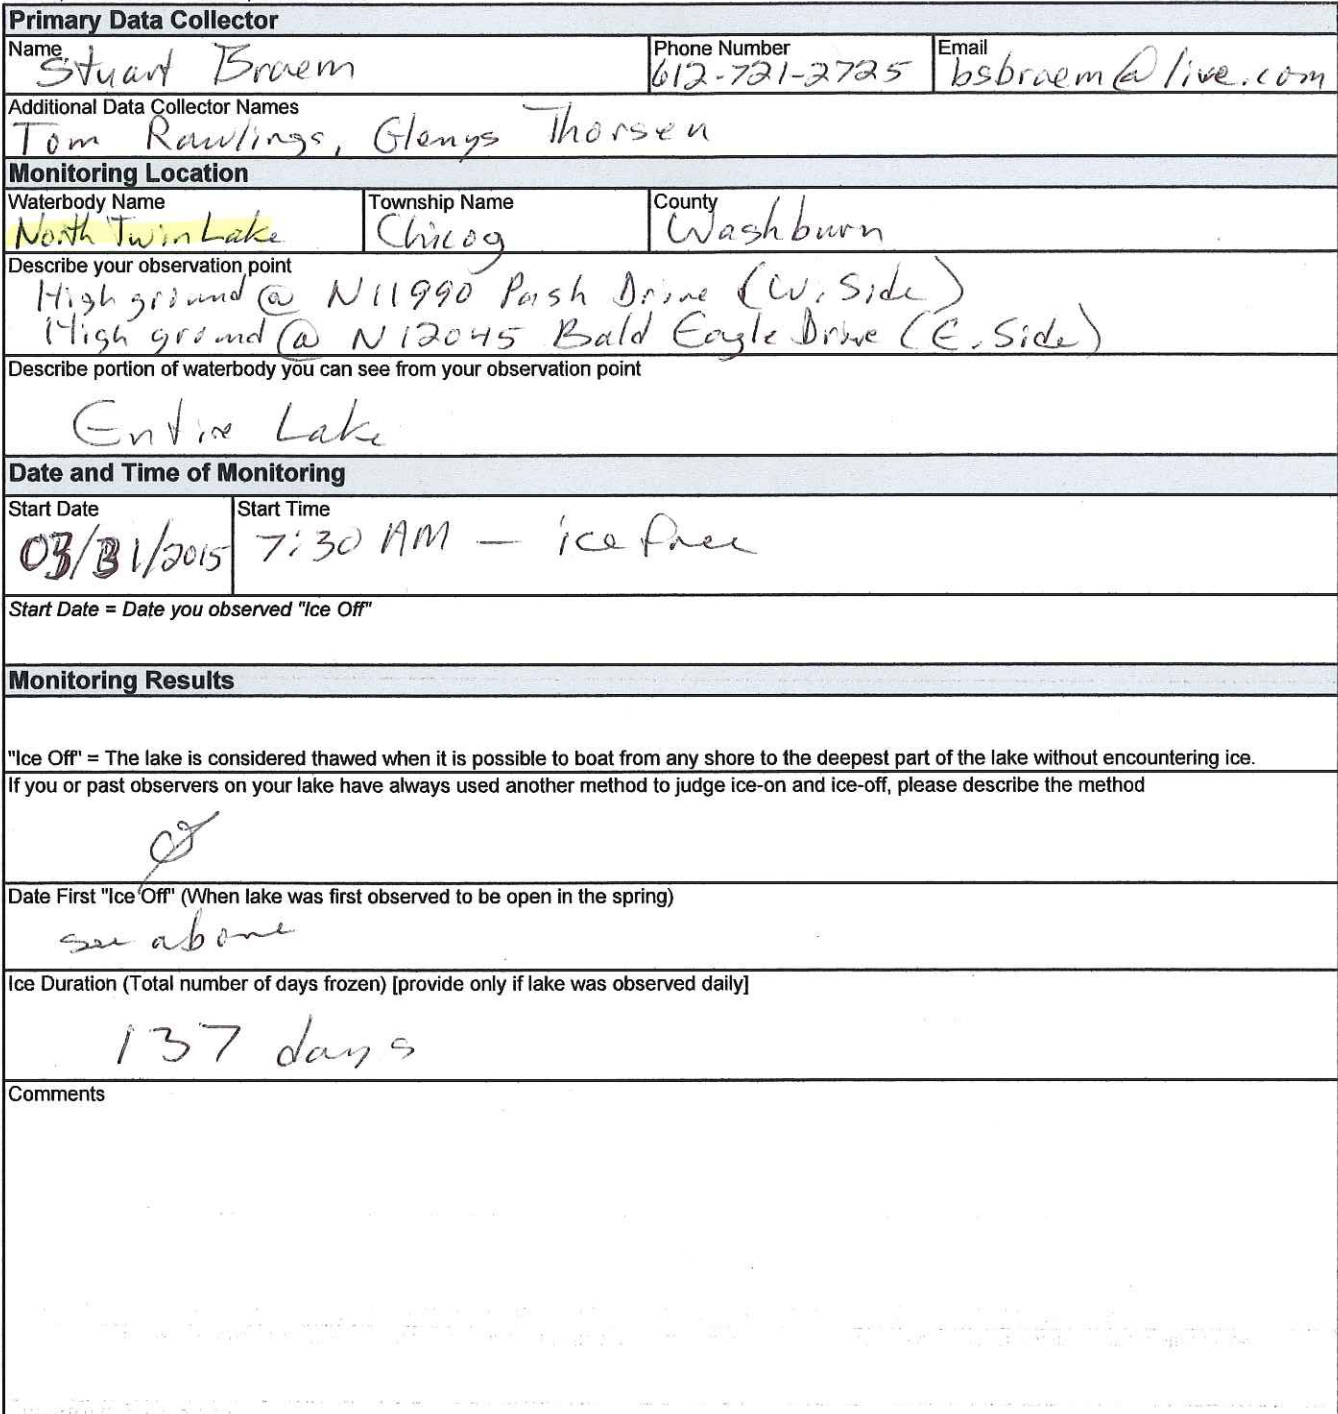 Primary Data Collector
Name Phone Number Email
Stuart Braem 612-721-2725 bsbraem@live.com
Additional Data Collector Names
Tom Rawlings, Glenys Thorsen
Monitoring Location
Waterbody Name Township Name County
North Twin Lake Chicog Washburn
Describe your observation point
High ground @ N11990 Drive (W. Side)
High ground @ N12045 Bald Eagle Drive (E. Side)
Describe portion of waterbody you can see from your observation point
Entire Lake
Date and Time of Monitoring
Start Date Start Time
03/31/2015 7:30 AM — ice free
Start Date = Date you observed "Ice Off"
Monitoring Results
"Ice Off" = The lake is considered thawed when it is possible to boat from any shore to the deepest part of the lake without encountering ice.
If you or past observers on your lake have always used another method to judge ice-on and ice-off, please describe the method
Date First "Ice Off" (When lake was first observed to be open in the spring)
see above
Ice Duration (Total number of days frozen) [provide only if lake was observed daily]
137 days
Comments